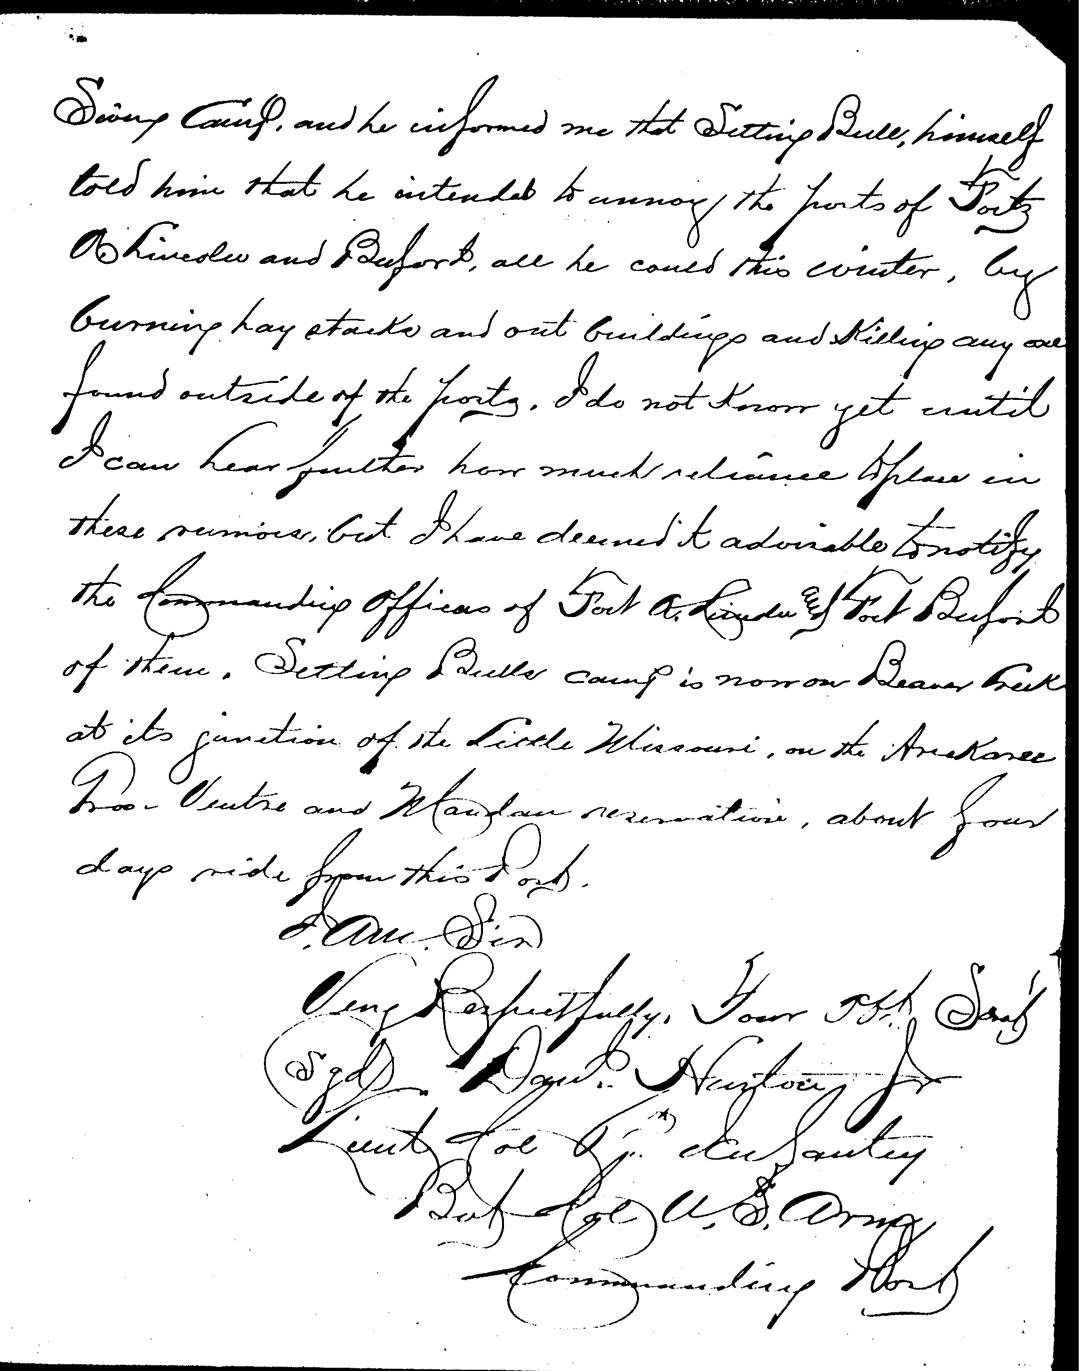 Sioux Camp, and he informed me that Setting Bull, himself
told him that he intended to annoy the posts of Forts
A Lincoln and Buford, all he could this winter, by
burning hay stacks and out buildings and Killing any one
found outside of the posts. I do not Know yet until
I can hear further how much reliance to place in
these rumors, but I have deemed it advisable to notify
the Commanding Officers of Fort A. Lincoln and Fort Buford
of them. Setting Bulls camp is now on Beaver Creek
at its junction of the Little Missouri, on the Arickaree
Gros-Ventre and Mandan reservation, about four
days ride from this Post.
I. Am. Sir
Very Respectfully, Your Obt. Servt
(Sgd). Danl. Huston, Jr
Lieut Col 6th Infantry
Bvt Col U. S. Army
Commanding Post